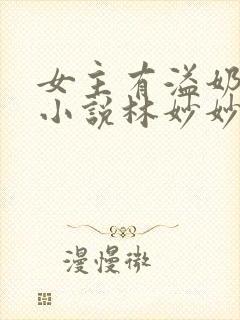 女主有溢奶
小说林妙妙
漫慢微